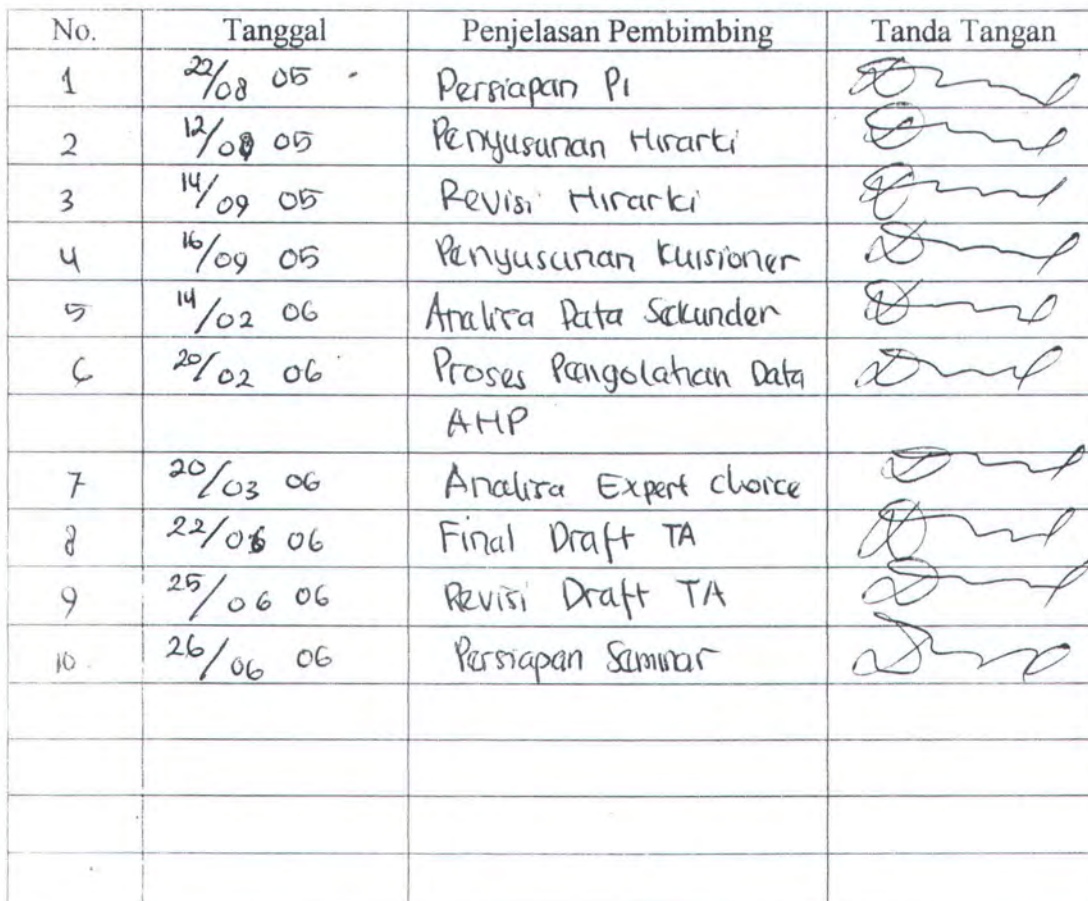 No. Tanggal Penjelasan Pembimbing Tanda Tangan
1 22/08 05 Persiapan P1
2 12/09 05 Penyusunan Hirarki
3 14/09 05 Revisi Hirarki
4 16/09 05 Penyusunan Kuisioner
5 14/02 06 Analisa Data Sekunder
6 20/02 06 Proses Pengolahan Data
AHP
7 20/03 06 Analisa Expert choice
8 22/06 06 Final Draft TA
9 25/06 06 Revisi Draft TA
10. 26/06 06 Persiapan Seminar